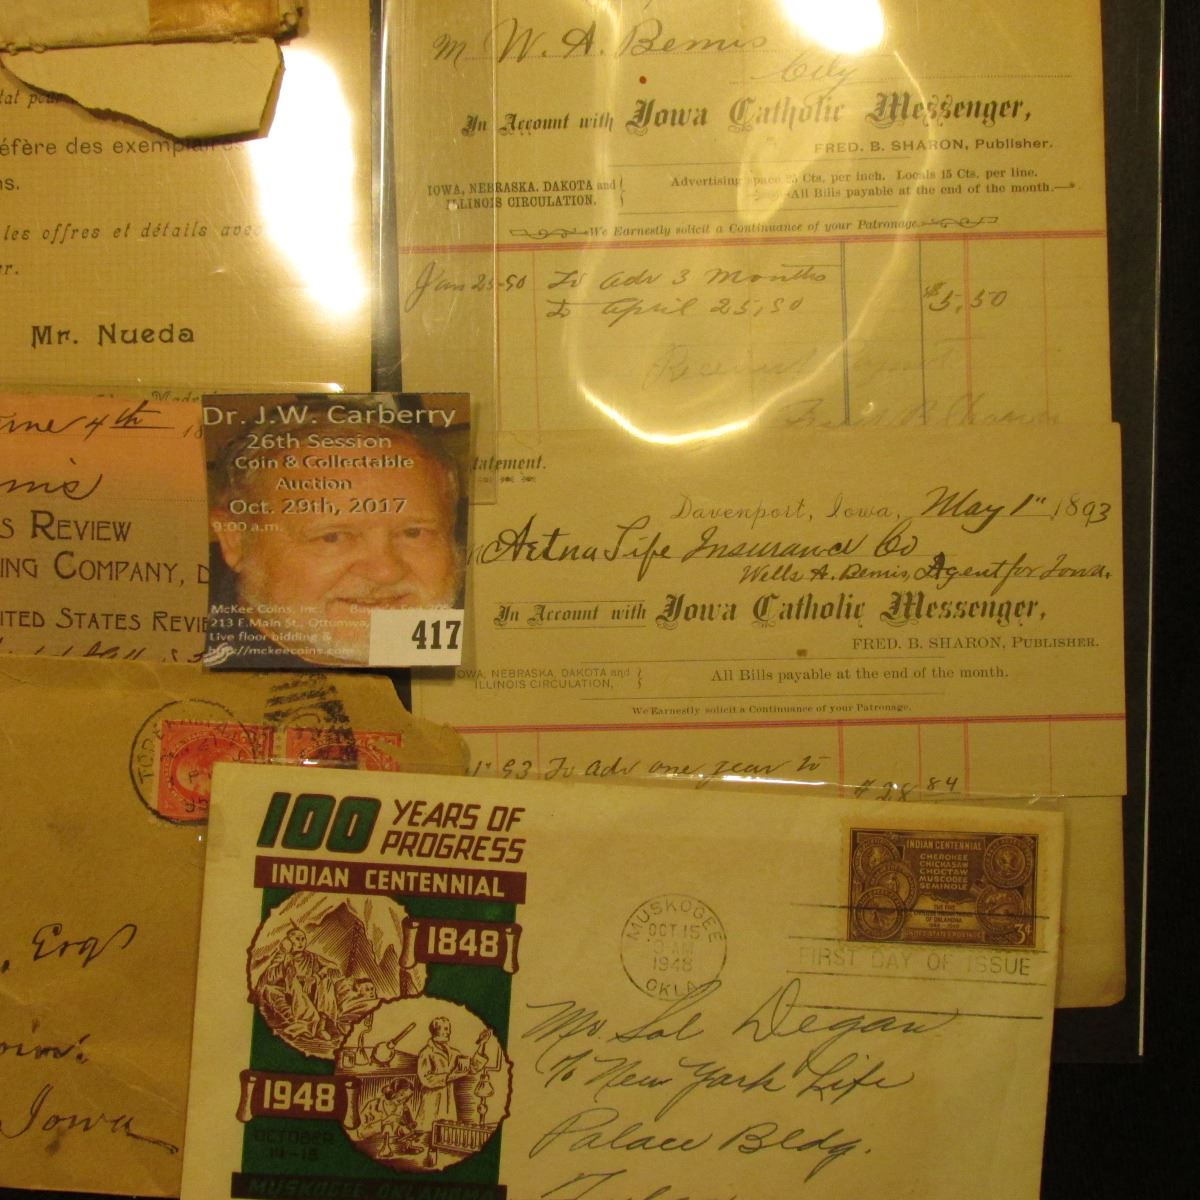 tat pour
éfère des exemplaires
ns.
les offres et détails avec
er.
Mr. Nueda
M W. A. Bemis
City
In Account with Iowa Catholic Messenger,
FRED. B. SHARON, Publisher.
IOWA, NEBRASKA. DAKOTA and
ILLINOIS CIRCULATION.
Advertising space 25 Cts. per inch. Locals 15 Cts. per line.
All Bills payable at the end of the month.
We Earnestly solicit a Continuance of your Patronage
Jan 25-90 To adv 3 months
To April 25, 90 $5.50
Received Payment
Fred B Sharon
4th 18
S REVIEW
ING COMPANY, D
ITED STATES REVIE
Dr. J.W. Carberry
26th Session
Coin & Collectable
Auction
Oct. 29th, 2017
9:00 a.m.
McKee Coins, Inc.
213 E.Main St., Ottumwa,
Live floor bidding &
http://mckeecoins.com
417
tatement.
Davenport, Iowa, May 1" 1893
Aetna Life Insurance Co
Wells A. Bemis, Agent for Iowa.
In Account with Iowa Catholic Messenger,
FRED. B. SHARON, PUBLISHER.
IOWA, NEBRASKA, DAKOTA and
ILLINOIS CIRCULATION,
All Bills payable at the end of the month.
We Earnestly solicit a Continuance of your Patronage.
93 To adv one year to
$28 84
Esq
Iowa
100 YEARS OF
PROGRESS
INDIAN CENTENNIAL
1848
1948
OCTOBER
14-15
MUSKOGEE OKLAHOMA
MUSKOGEE
OCT 15
1948
OKLA
INDIAN CENTENNIAL
CHEROKEE
CHICKASAW
CHOCTAW
MUSCOGEE
SEMINOLE
OF OKLAHOMA
UNITED STATES POSTAGE
3¢
FIRST DAY OF ISSUE
Mr. Sol Degan
% New York Life
Palace Bldg.